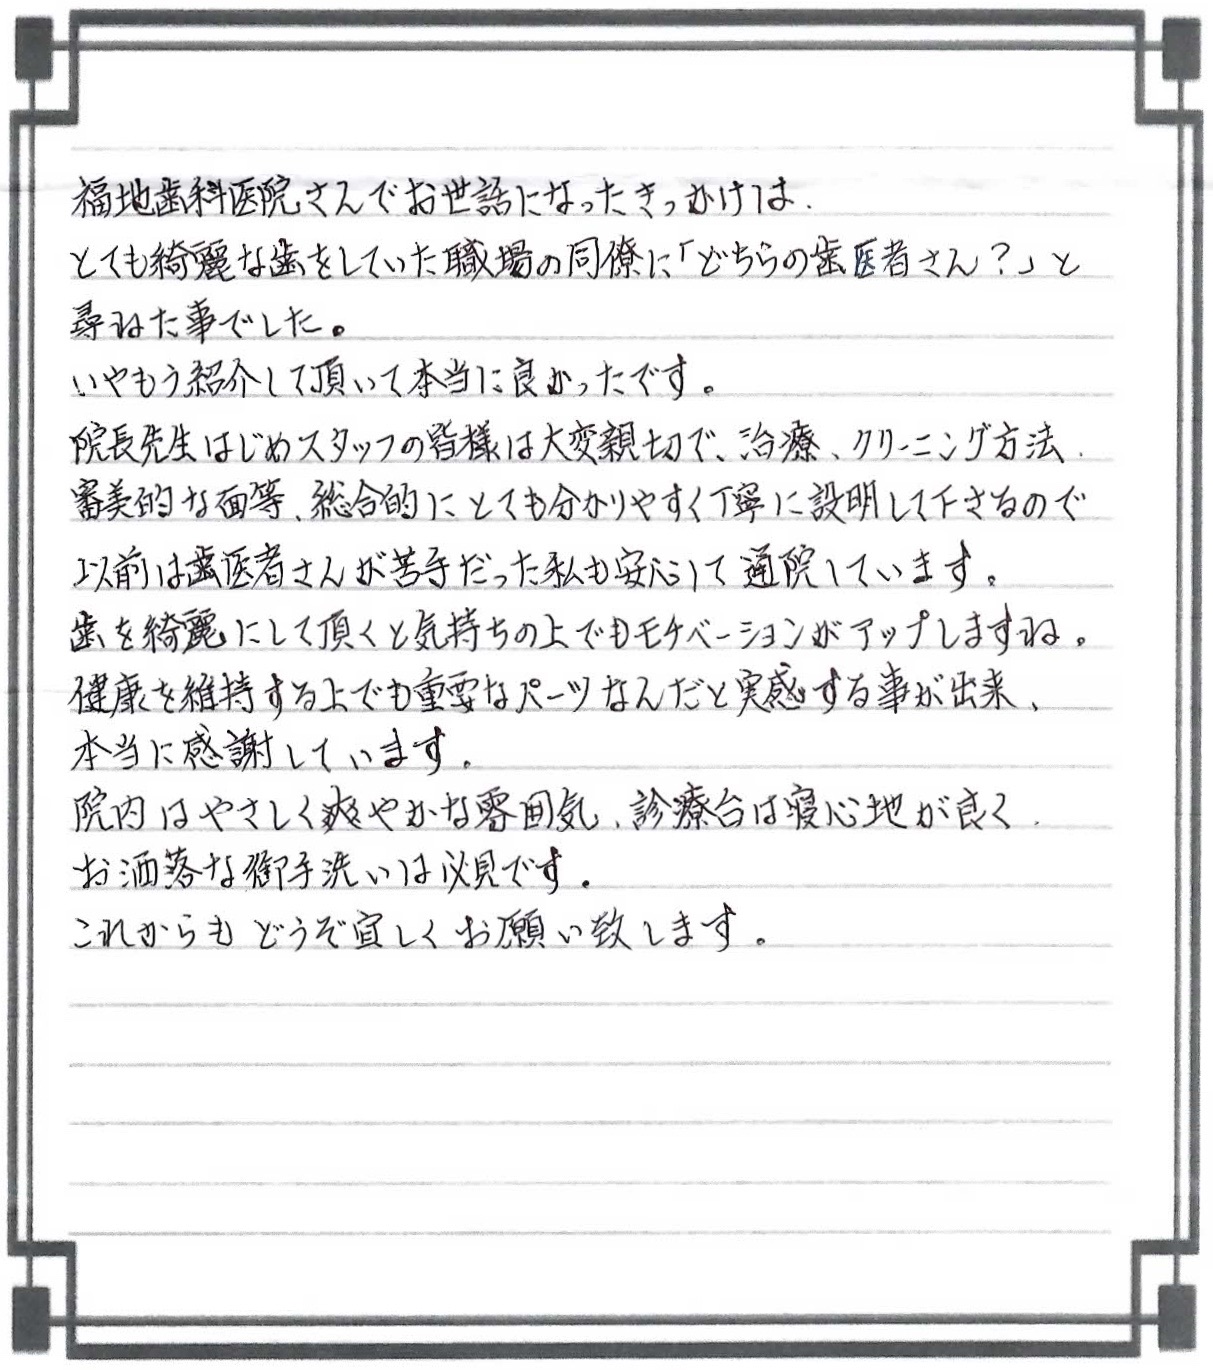 福地歯科医院さんでお世話になったきっかけは、
とても綺麗な歯をしていた職場の同僚に「どちらの歯医者さん？」と
尋ねた事でした。
いやもう紹介して頂いて本当に良かったです。
院長先生はじめスタッフの皆様は大変親切で、治療、クリーニング方法、
審美的な面等、総合的にとても分かりやすく丁寧に説明して下さるので
以前は歯医者さんが苦手だった私も安心して通院しています。
歯を綺麗にして頂くと気持ちの上でもモチベーションがアップしますね。
健康を維持する上でも重要なパーツなんだと実感する事が出来、
本当に感謝しています。
院内はやさしく爽やかな雰囲気、診療台は寝心地が良く、
お洒落な御手洗いは必見です。
これからもどうぞ宜しくお願い致します。